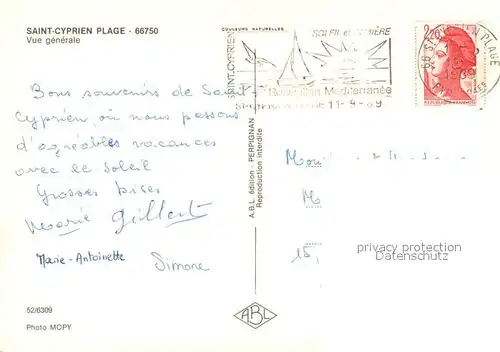 SAINT-CYPRIEN PLAGE - 66750
Vue générale
COULEURS NATURELLES
SAINT-CYPRIEN
SOLEIL et LUMIÈRE
Roussillon Méditerranée
11-4-89
2,20
66 ST CYPRIEN PLAGE
Bons souvenirs de Saint-
Cyprien, où nous passons
d'agréables vacances
avec le soleil
Grosses bises
Marie Gilbert
Marie-Antoinette
Simone
A.B.L. édition - PERPIGNAN
Reproduction interdite
M
15,
privacy protection
Datenschutz
52/6309
Photo MOPY
ABL